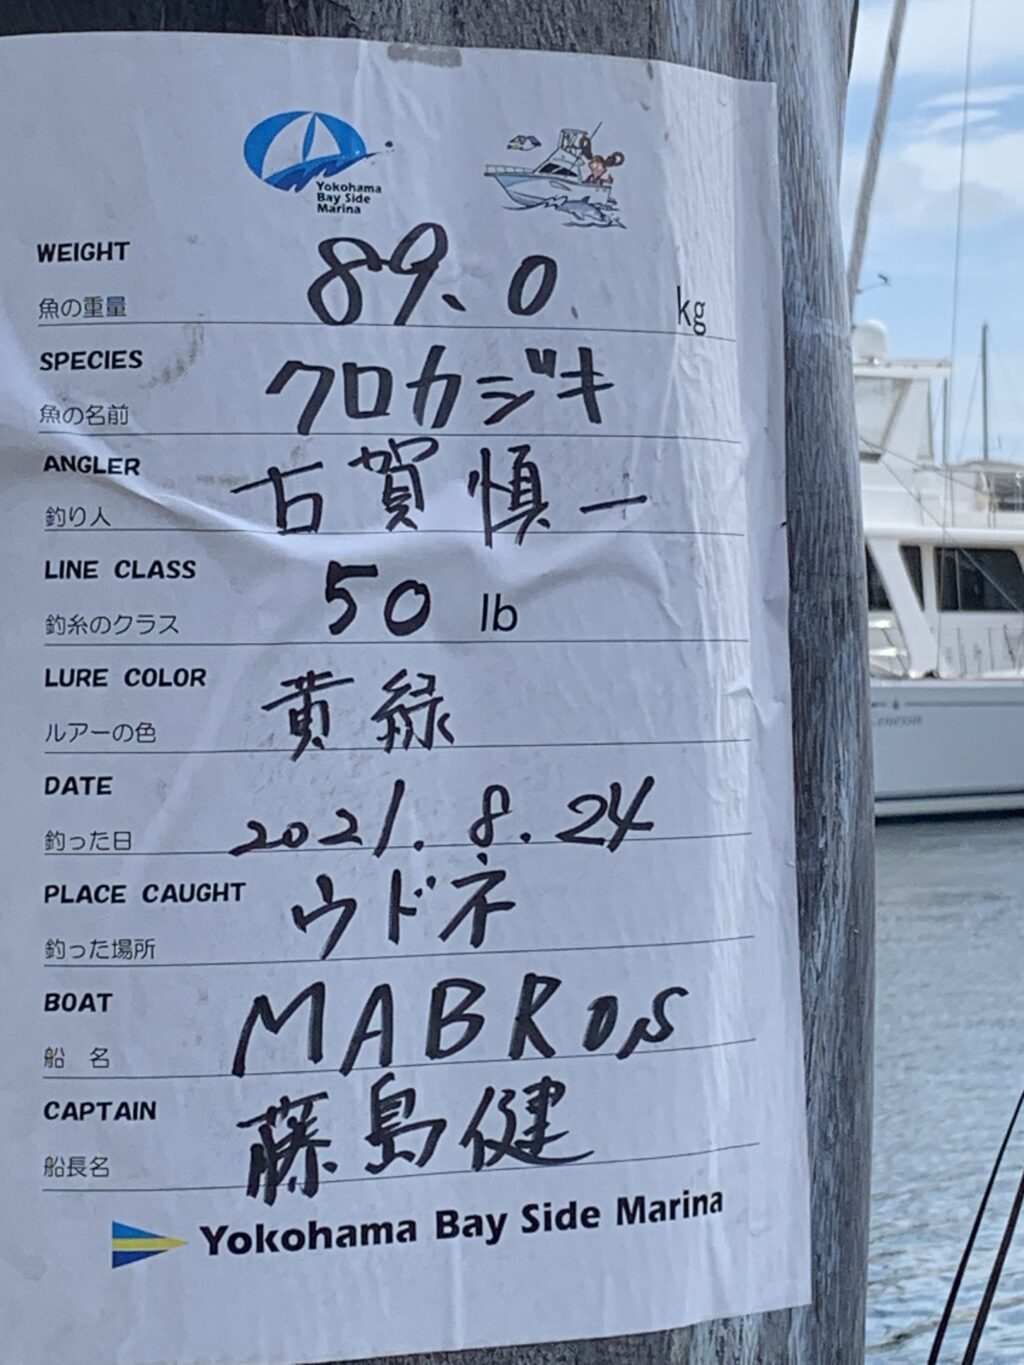 Yokohama
Bay Side
Marina
WEIGHT
魚の重量
89.0 kg
SPECIES
魚の名前
クロカジキ
ANGLER
釣り人
古賀慎一
LINE CLASS
釣糸のクラス
50 lb
LURE COLOR
ルアーの色
黄緑
DATE
釣った日
2021.8.24
PLACE CAUGHT
釣った場所
ウドネ
BOAT
船 名
MABROs
CAPTAIN
船長名
藤島健
Yokohama Bay Side Marina